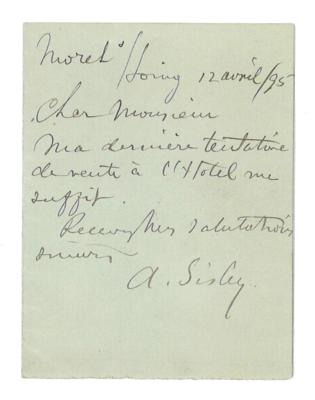 Moret s/Loing 12 avril/95
Cher Monsieur
Ma dernière tentative
de vente à l'Hotel me
suffit.
Recevez mes salutations
A. Sisley.